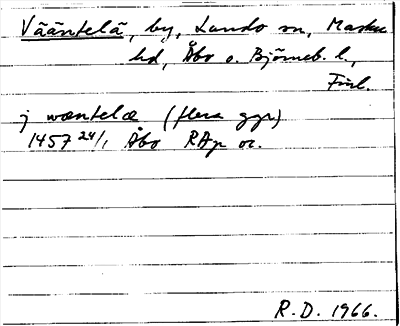 Vääntelä, by, Lundo sn, Masku
hd, Åbo o. Björneb. l.,
Finl.
j wæntelæ (flera ggr)
1457 24/1 Åbo RAp or.
R.D. 1966.